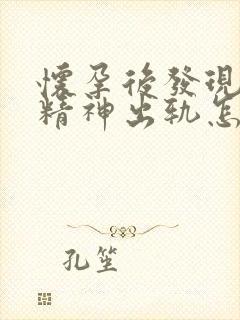 懷孕後發現
精神出軌怎
孔笙